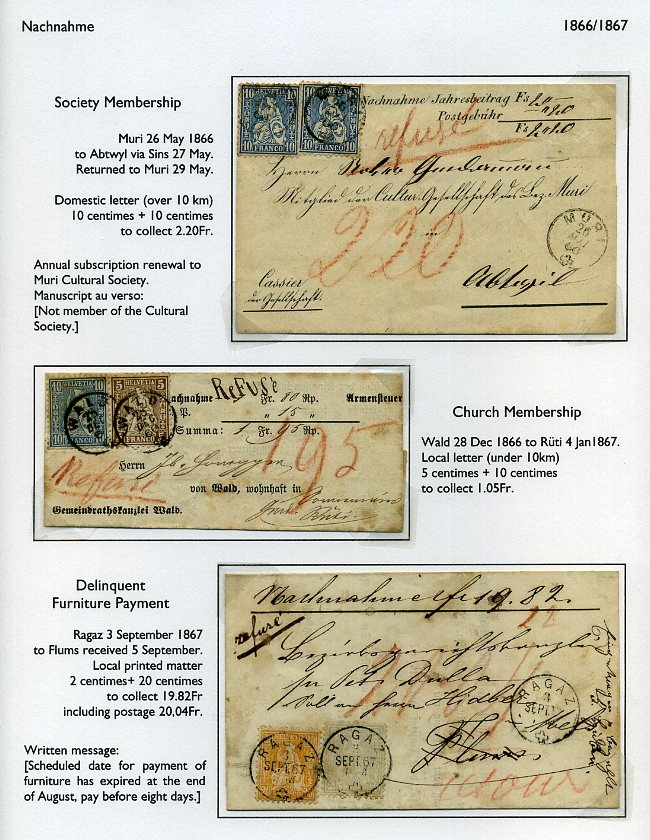 Nachnahme
1866/1867
Society Membership
Muri 26 May 1866
to Abtwyl via Sins 27 May.
Returned to Muri 29 May.
Domestic letter (over 10 km)
10 centimes + 10 centimes
to collect 2.20Fr.
Annual subscription renewal to
Muri Cultural Society.
Manuscript au verso:
[Not member of the Cultural
Society.]
10 HELVETIA 10
10 FRANCO 10
10 HELVETIA 10
10 FRANCO 10
Nachnahme Jahresbeitrag Fs
Postgebühr
Fs
refusé
Herrn
Mitglied der Cultur-Gesellschaft des Bez. Muri
in
220
MURI
Cassier
der Gesellschaft.
Abtwyl
10 HELVETIA 10
10 FRANCO
5 HELVETIA 5
FRANCO
WALD
WALD
REFUSÉ
achnahme Fr. 80 Rp. Armensteuer
P. " 15 "
Summa: 1 Fr. 95 Rp.
195
Refusé
Herrn
von Wald, wohnhaft in
Rüti
Gemeindrathskanzlei Wald.
Church Membership
Wald 28 Dec 1866 to Rüti 4 Jan1867.
Local letter (under 10km)
5 centimes + 10 centimes
to collect 1.05Fr.
Delinquent
Furniture Payment
Ragaz 3 September 1867
to Flums received 5 September.
Local printed matter
2 centimes+ 20 centimes
to collect 19.82Fr
including postage 20,04Fr.
Written message:
[Scheduled date for payment of
furniture has expired at the end
of August, pay before eight days.]
Nachnahme 19.82.
22
refusé
Bezirksgerichtskanzlei
RAGAZ
3
SEPT
Flums
RAGAZ
SEPT 67
RAGAZ
3
SEPT 67
retour